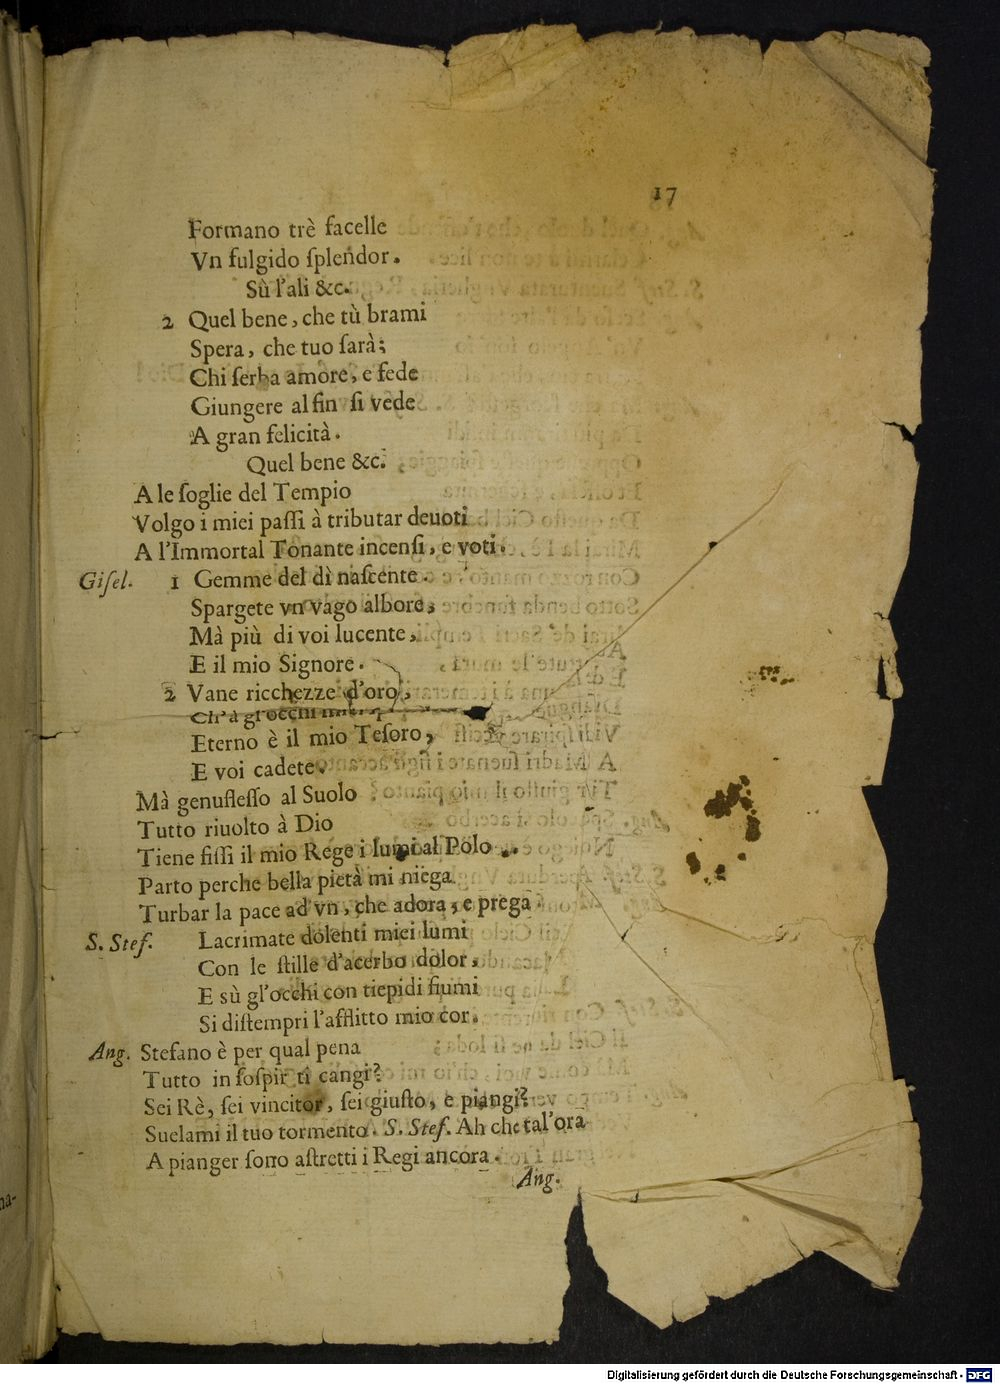 17
Formano trè facelle
Vn fulgido ſplendor.
Sù l'ali &c.
2 Quel bene, che tù brami
Spera, che tuo ſarà;
Chi ſerba amore, e fede
Giungere al fin ſi vede
A gran felicità.
Quel bene &c.
A le ſoglie del Tempio
Volgo i miei paſſi à tributar deuoti
A l'Immortal Tonante incenſi, e voti.
Giſel. 1 Gemme del dì naſcente.
Spargete vn vago albore,
Mà più di voi lucente,
E il mio Signore.
2 Vane ricchezze d'oro,
Ch'à gl'occhi
Eterno è il mio Teſoro,
E voi cadete.
Mà genufleſſo al Suolo
Tutto riuolto à Dio
Tiene fiſſi il mio Rege i lumi al Polo.
Parto perche bella pietà mi niega
Turbar la pace ad vn, che adora, e prega.
S. Stef. Lacrimate dolenti miei lumi
Con le ſtille d'acerbo dolor,
E sù gl'occhi con tiepidi fiumi
Si diſtempri l'afflitto mio cor.
Ang. Stefano è per qual pena
Tutto in ſoſpir ti cangi?
Sei Rè, ſei vincitor, ſei giuſto, e piangi?
Suelami il tuo tormento. S. Stef. Ah che tal'ora
A pianger ſono aſtretti i Regi ancora.
Ang.
na-
Digitalisierung gefördert durch die Deutsche Forschungsgemeinschaft - DFG